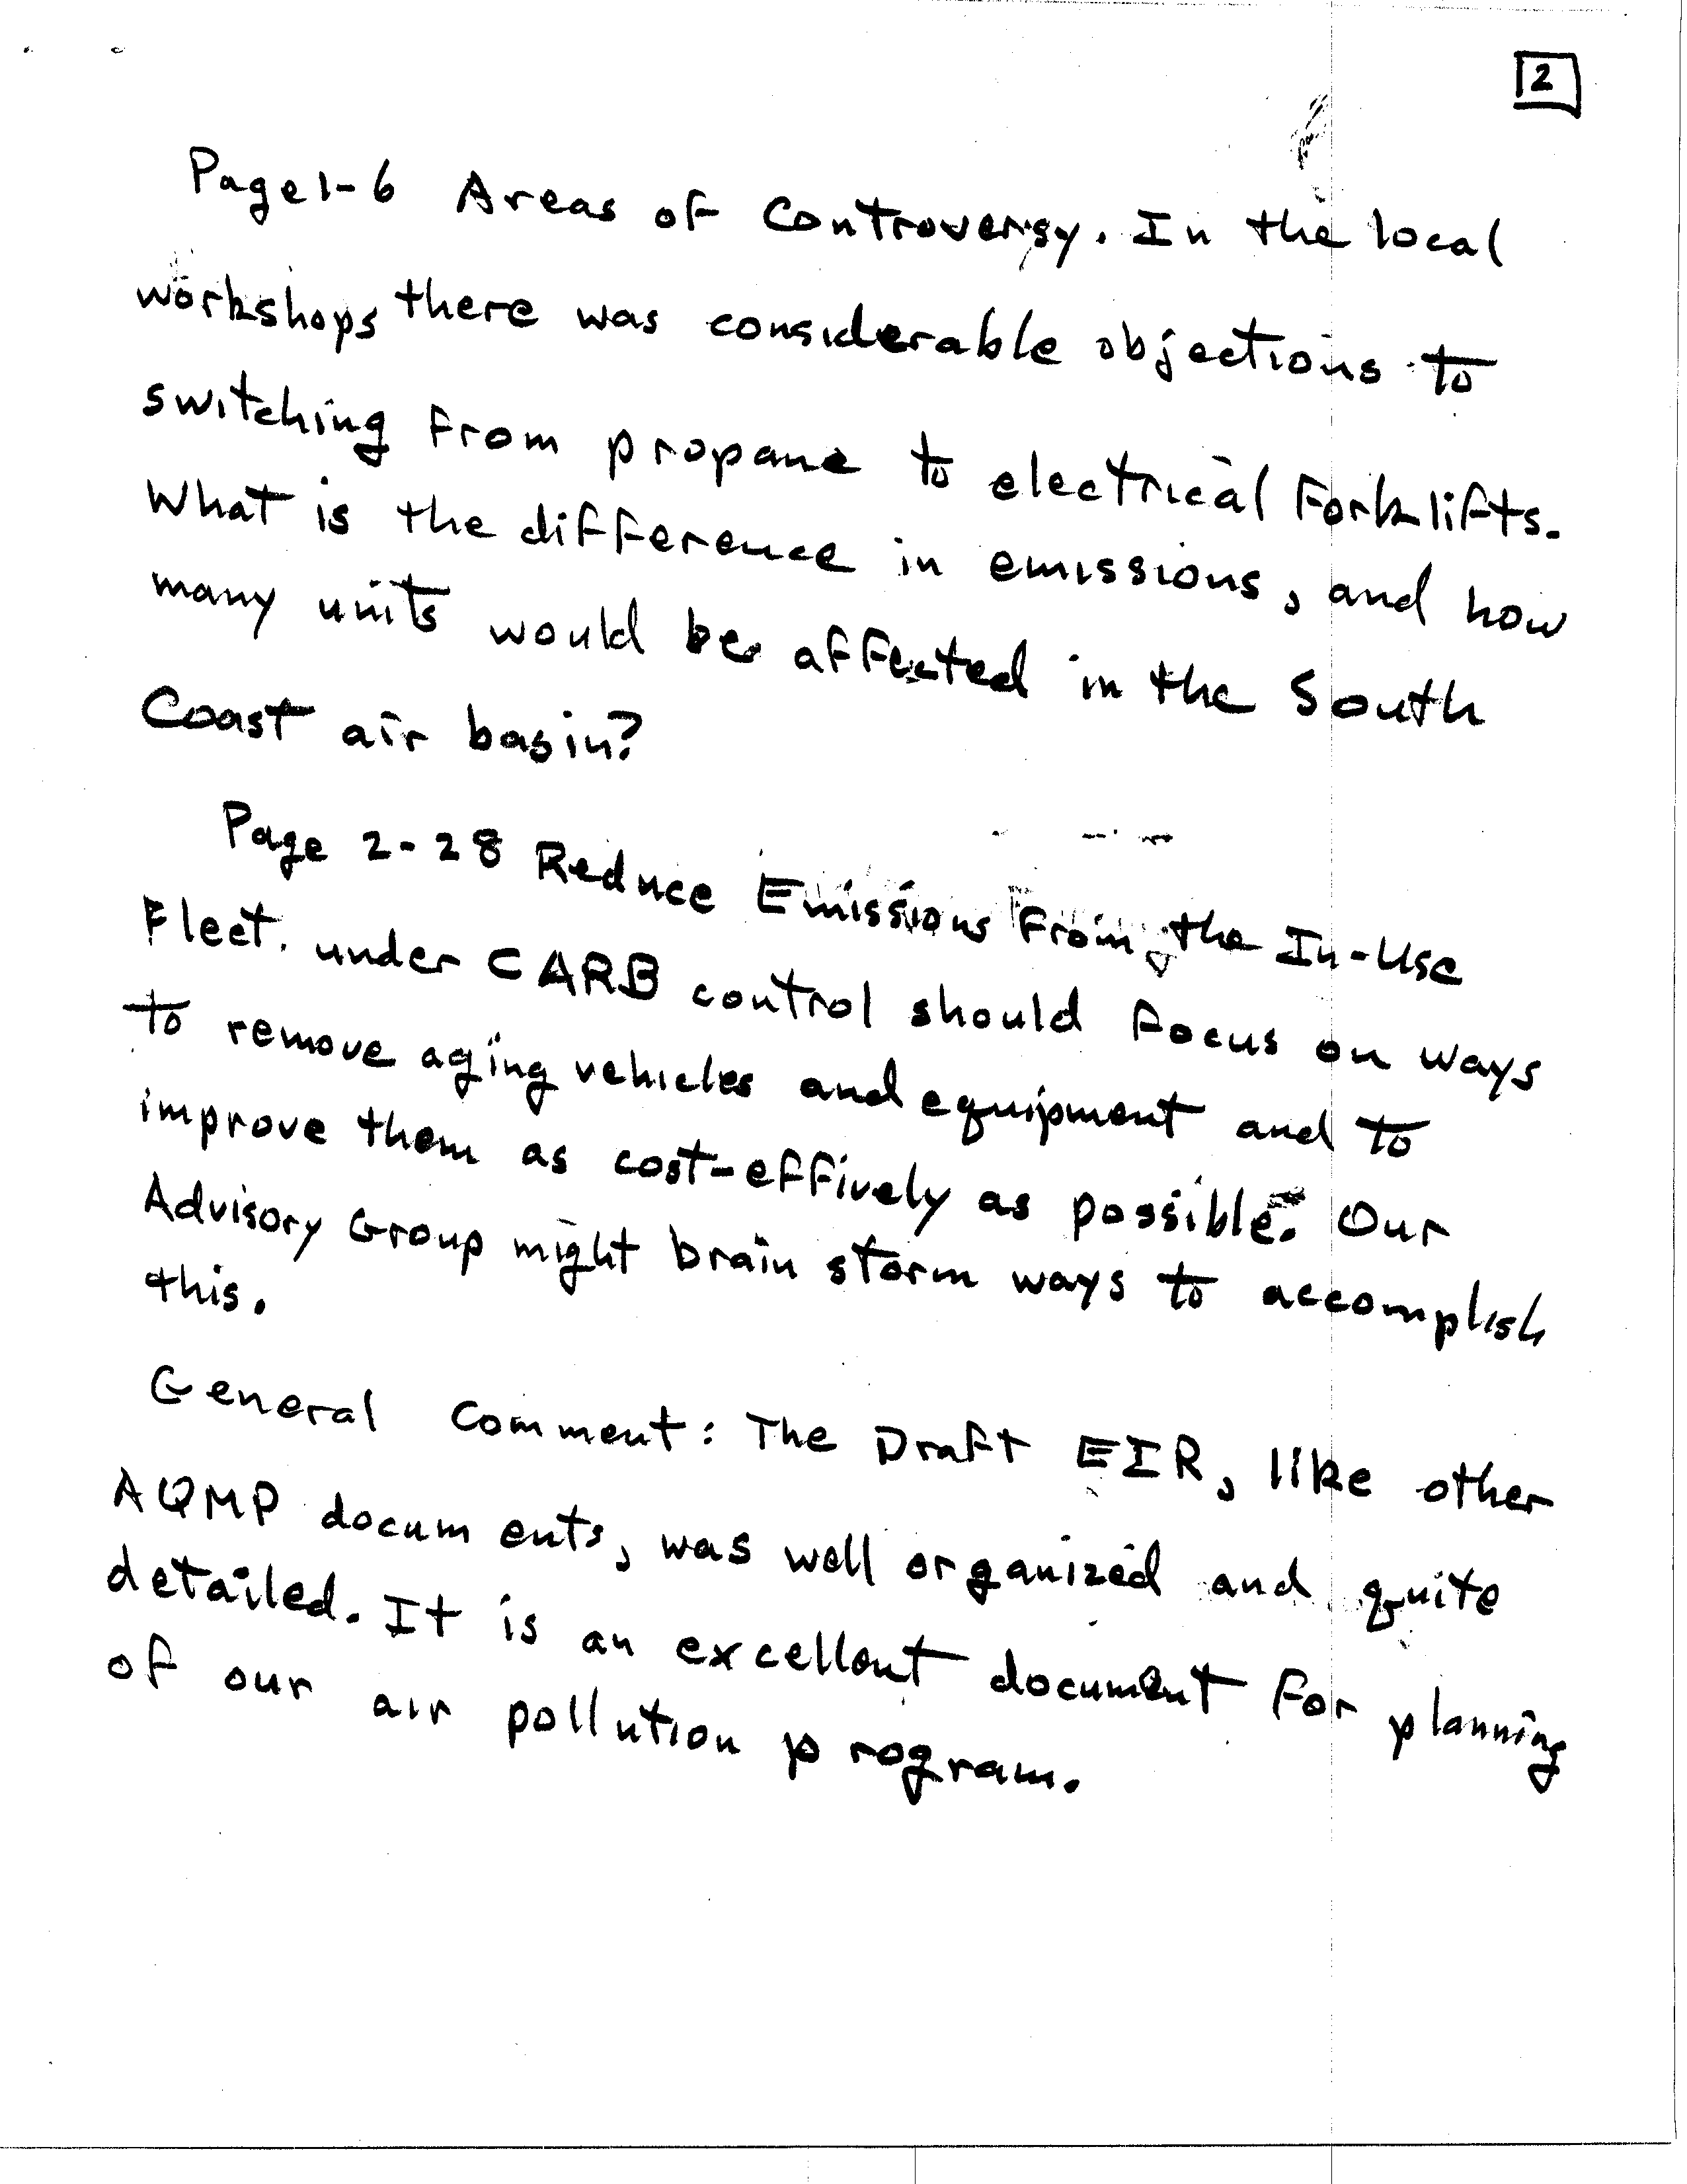 2
Page 1-6 Areas of Controversy. In the local
workshops there was considerable objections to
switching from propane to electrical Forklifts.
What is the difference in emissions, and how
many units would be affected in the South
Coast air basin?
Page 2-28 Reduce Emissions From the In-Use
Fleet. under CARB control should focus on ways
to remove aging vehicles and equipment and to
improve them as cost-effively as possible. Our
Advisory Group might brain storm ways to accomplish
this.
General Comment: The Draft EIR, like other
AQMP documents, was well organized and quite
detailed. It is an excellent document for planning
of our air pollution program.